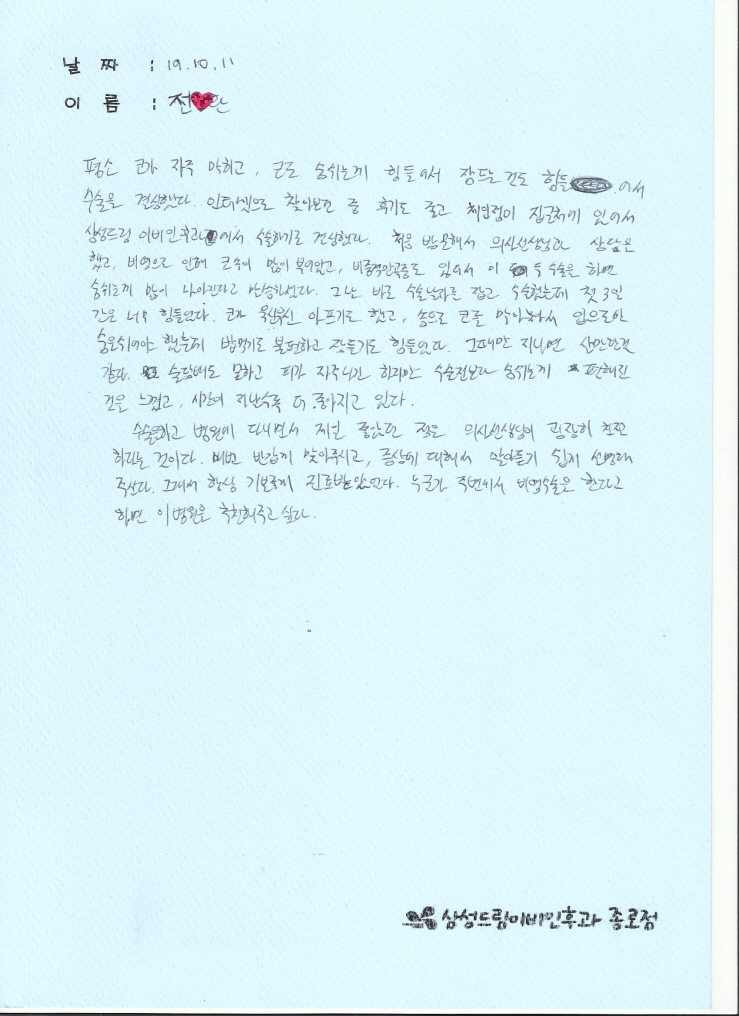 날 짜 : 19.10.11
이 름 : 전♥환
평소 코가 자주 막히고, 코로 숨쉬는게 힘들어서 잠드는 것도 힘들어서
수술을 결심했다. 인터넷으로 찾아보던 중 후기도 좋고 체인점이 집근처에 있어서
삼성드림 이비인후과에서 수술하기로 결심했다. 처음 방문해서 의사선생님과 상담을
했고, 비염으로 인해 코속이 많이 부어있었고, 비중격만곡증도 있어서 이 두 수술을 하면
숨쉬는게 많이 나아진다고 말씀하셨다. 그날 바로 수술날짜를 잡고 수술했는데 첫 3일
간은 너무 힘들었다. 코가 욱신욱신 아프기도 했고, 솜으로 코를 막아놔서 입으로만
숨을쉬어야 했는데 밥먹기도 불편하고 잠들기도 힘들었다. 그때만 지나면 살만한것
같다. 술담배도 못하고 피가 자주나긴 하지만 수술전보다 숨쉬는게 편해진
것은 느꼈고, 시간이 지날수록 더 좋아지고 있다.
수술하고 병원에 다니면서 제일 좋았던 점은 의사선생님이 굉장히 친절
하다는 것이다. 매번 반갑게 맞아주시고, 증상에 대해서 알아듣기 쉽게 설명해
주신다. 그래서 항상 기분좋게 진료받았었다. 누군가 주변에서 비염수술을 한다고
하면 이병원을 추천해주고 싶다.
삼성드림이비인후과 종로점